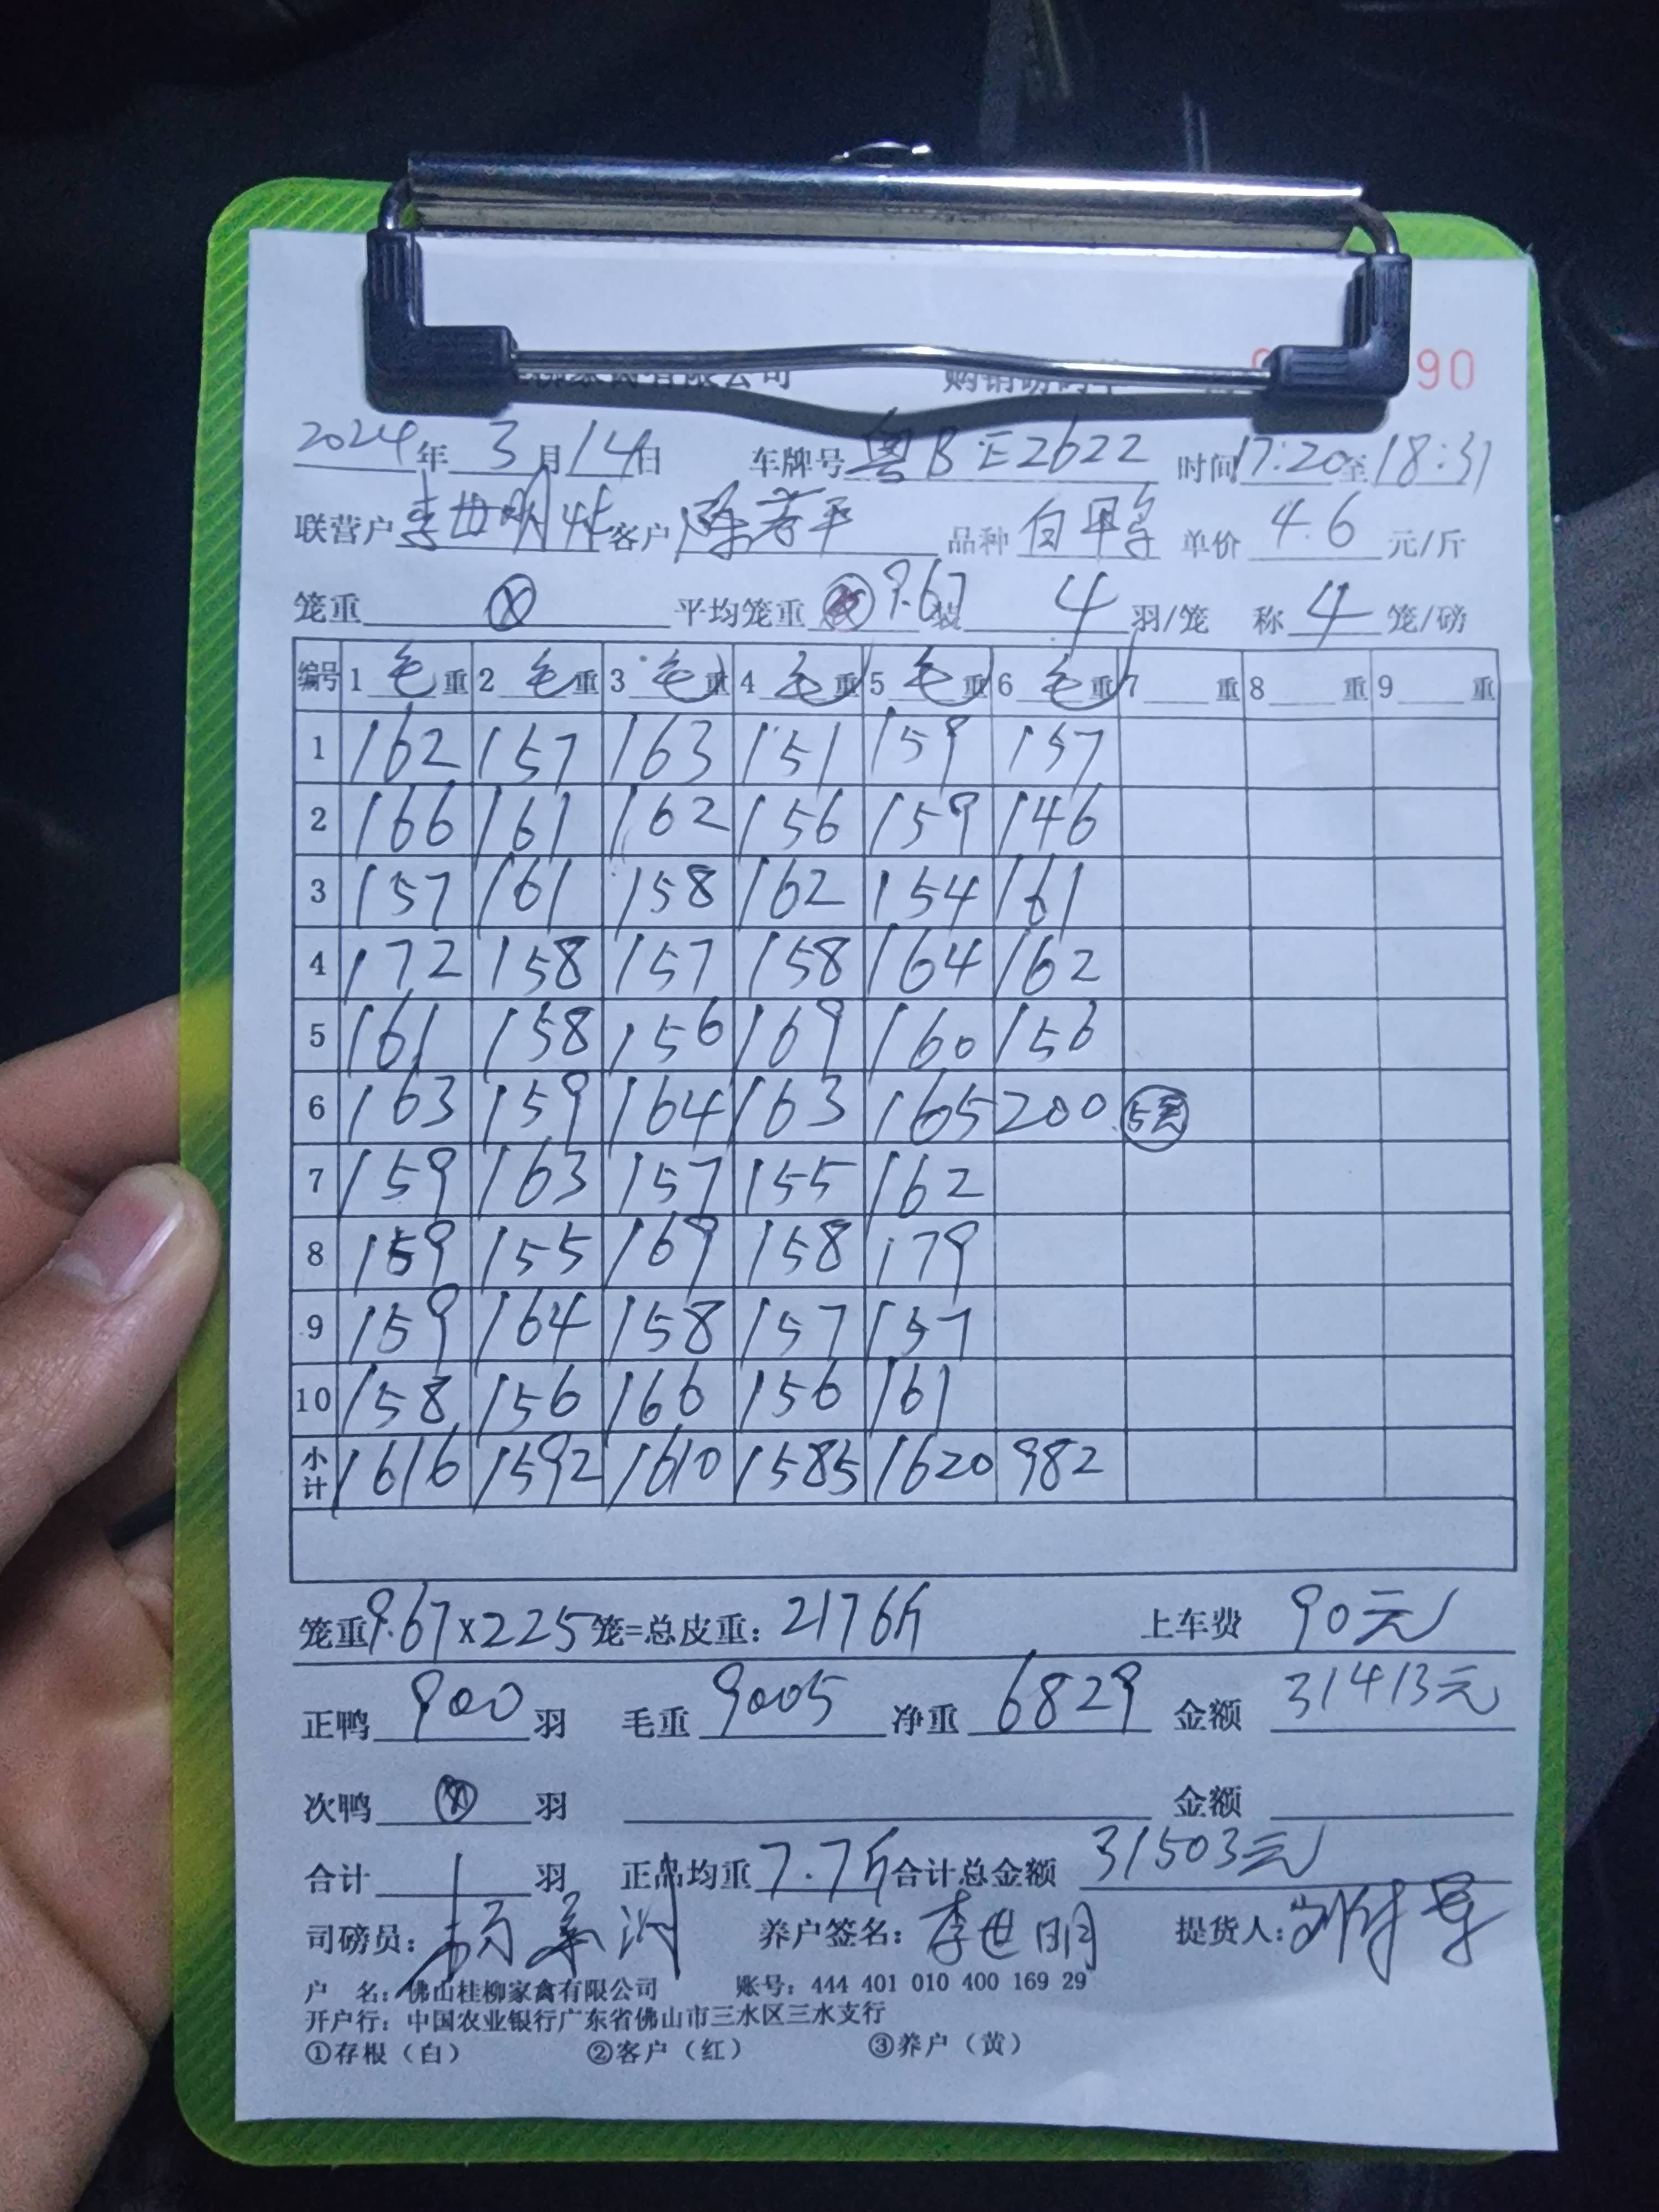 家禽有限公司 购销磅码单 90
2024年3月14日 车牌号 粤B·E2622 时间17:20至18:31
联营户 李世明 客户 陈芳平 品种 白甲 单价 4.6 元/斤
笼重 平均笼重 9.67 装 4 羽/笼 称 4 笼/磅
编号 1 毛 重 2 毛 重 3 毛 重 4 毛 重 5 毛 重 6 毛 重 7 重 8 重 9 重
1 162 157 163 151 159 157
2 166 161 162 156 159 146
3 157 161 158 162 154 161
4 172 158 157 158 164 162
5 161 158 156 169 160 156
6 163 159 164 163 165 200 5笼
7 159 163 157 155 162
8 159 155 169 158 179
9 159 164 158 157 157
10 158 156 166 156 161
小计 1616 1592 1610 1585 1620 982
笼重9.67x225笼=总皮重：2176斤 上车费 90元
正鸭 900 羽 毛重 9005 净重 6829 金额 31413元
次鸭 羽 金额
合计 羽 正品均重 7.7斤 合计总金额 31503元
司磅员： 养户签名：李世明 提货人：
户 名：佛山桂柳家禽有限公司 账号：444 401 010 400 169 29
开户行：中国农业银行广东省佛山市三水区三水支行
①存根（白） ②客户（红） ③养户（黄）